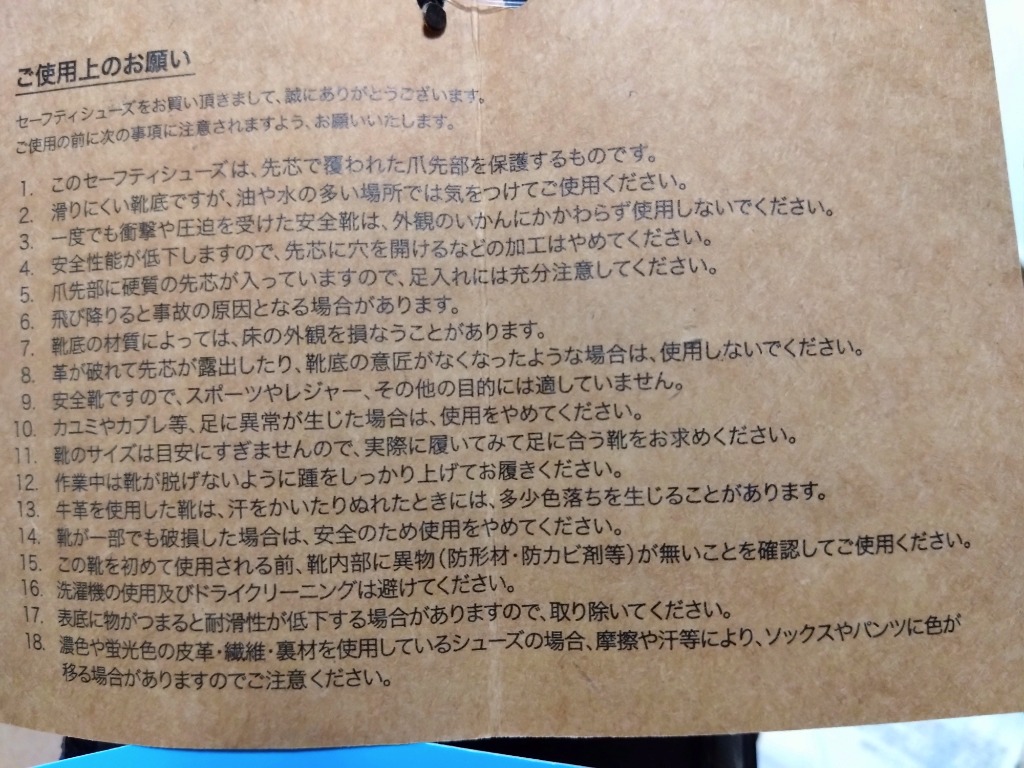 ご使用上のお願い
セーフティシューズをお買い頂きまして、誠にありがとうございます。
ご使用の前に次の事項に注意されますよう、お願いいたします。
1. このセーフティシューズは、先芯で覆われた爪先部を保護するものです。
2. 滑りにくい靴底ですが、油や水の多い場所では気をつけてご使用ください。
3. 一度でも衝撃や圧迫を受けた安全靴は、外観のいかんにかかわらず使用しないでください。
4. 安全性能が低下しますので、先芯に穴を開けるなどの加工はやめてください。
5. 爪先部に硬質の先芯が入っていますので、足入れには充分注意してください。
6. 飛び降りると事故の原因となる場合があります。
7. 靴底の材質によっては、床の外観を損なうことがあります。
8. 革が破れて先芯が露出したり、靴底の意匠がなくなったような場合は、使用しないでください。
9. 安全靴ですので、スポーツやレジャー、その他の目的には適していません。
10. カユミやカブレ等、足に異常が生じた場合は、使用をやめてください。
11. 靴のサイズは目安にすぎませんので、実際に履いてみて足に合う靴をお求めください。
12. 作業中は靴が脱げないように踵をしっかり上げてお履きください。
13. 牛革を使用した靴は、汗をかいたりぬれたときには、多少色落ちを生じることがあります。
14. 靴が一部でも破損した場合は、安全のため使用をやめてください。
15. この靴を初めて使用される前、靴内部に異物(防形材・防カビ剤等)が無いことを確認してご使用ください。
16. 洗濯機の使用及びドライクリーニングは避けてください。
17. 表底に物がつまると耐滑性が低下する場合がありますので、取り除いてください。
18. 濃色や蛍光色の皮革・繊維・裏材を使用しているシューズの場合、摩擦や汗等により、ソックスやパンツに色が
移る場合がありますのでご注意ください。